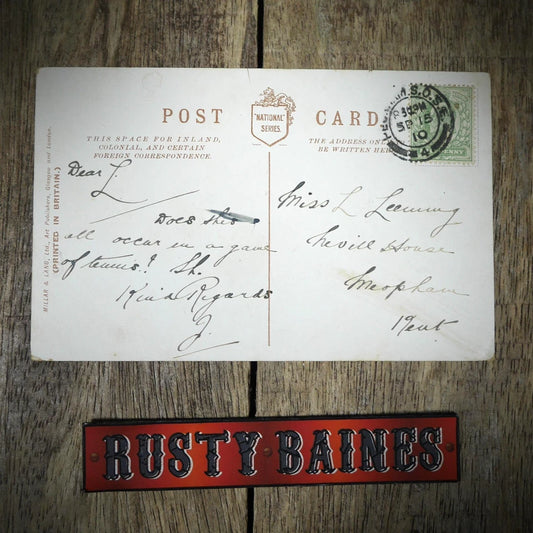 POST CARD
"NATIONAL"
SERIES.
THIS SPACE FOR INLAND,
COLONIAL, AND CERTAIN
FOREIGN CORRESPONDENCE.
THE ADDRESS ONL
BE WRITTEN HER
MILLAR & LANG, Ltd., Art Publishers, Glasgow and London.
(PRINTED IN BRITAIN.)
Dear L
Does this
all occur in a game
of tennis?
Kind Regards
J.
Miss L Leeming
Nevill House
Meopham
Kent
S.O.
SP 15
10
RUSTY BAINES